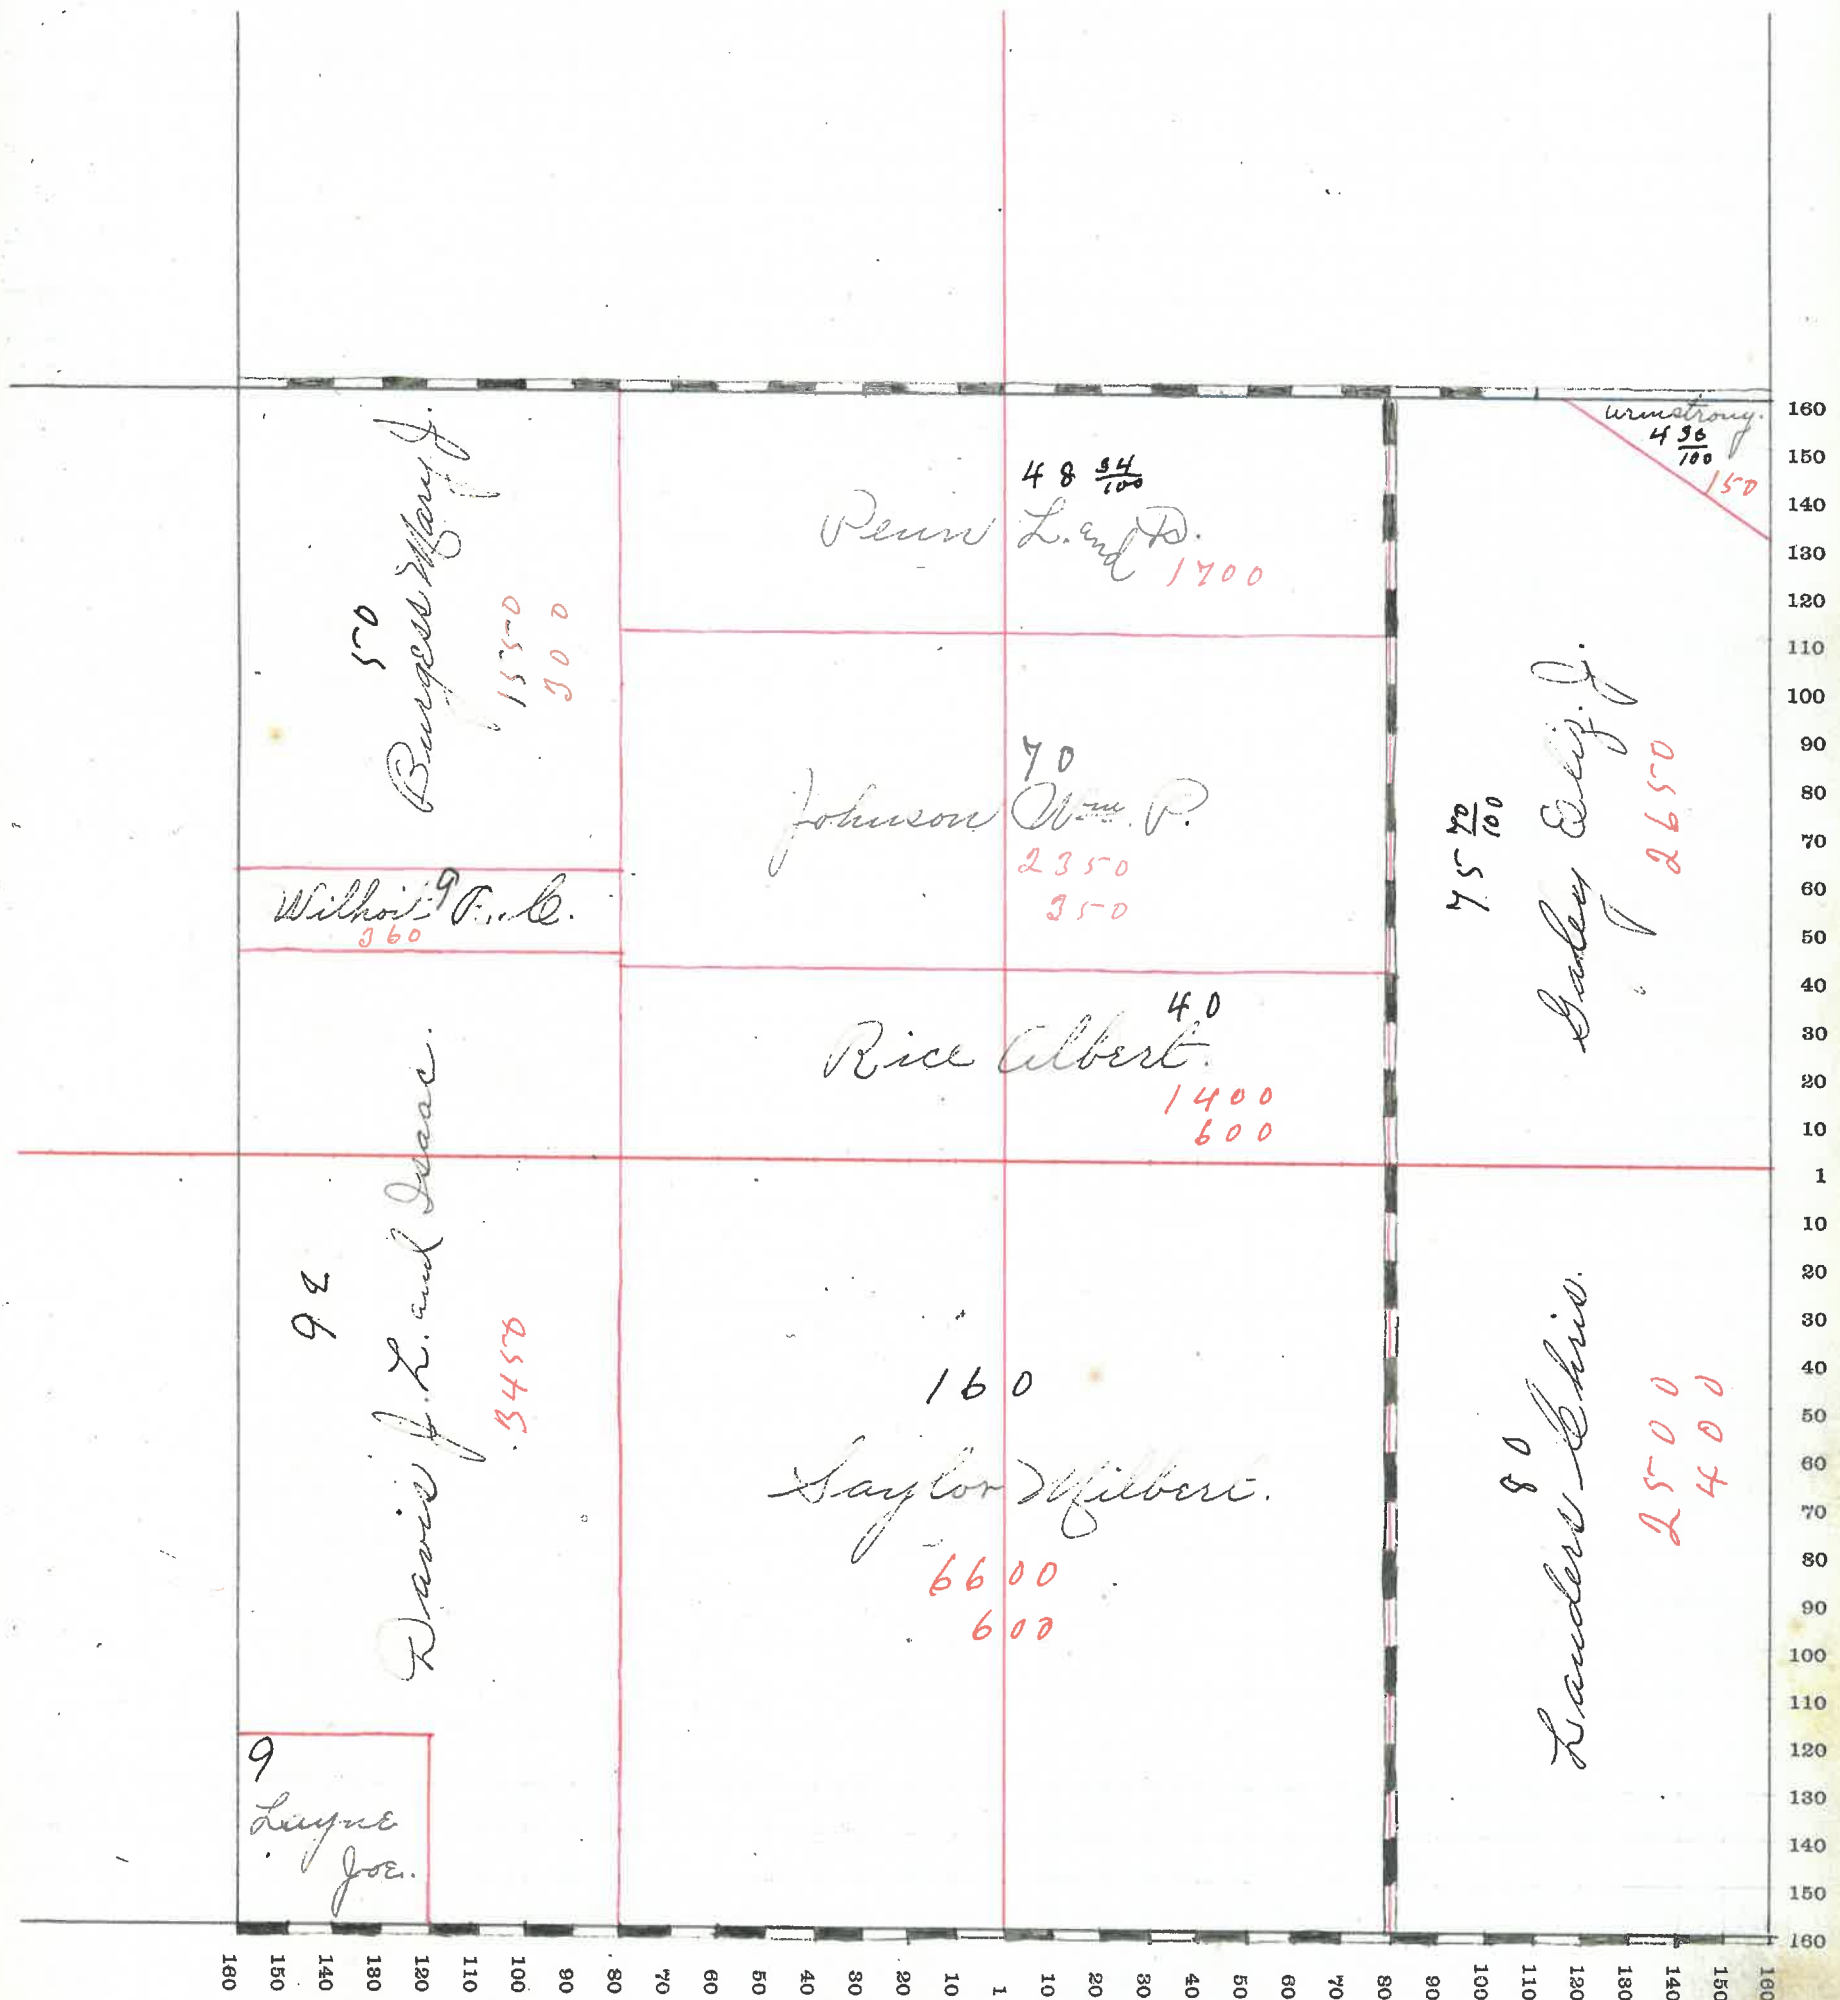 Armstrong.
4 36/100
150
50
Burgess Mary J.
1550
300
48 34/100
Penn L. and D.
1700
70
Johnson Wm. P.
2350
350
75 70/100
Eliz. J.
2650
9
Wilhoit F. C.
360
40
Rice Albert.
1400
600
92
Davis J. L. and Isaac.
3450
160
Saylor Milbert.
6600
600
80
Landers Chris.
2500
400
9
Layne
Joe.
160
150
140
130
120
110
100
90
80
70
60
50
40
30
20
10
1
10
20
30
40
50
60
70
80
90
100
110
120
130
140
150
160
160 150 140 130 120 110 100 90 80 70 60 50 40 30 20 10 1 10 20 30 40 50 60 70 80 90 100 110 120 130 140 150 160